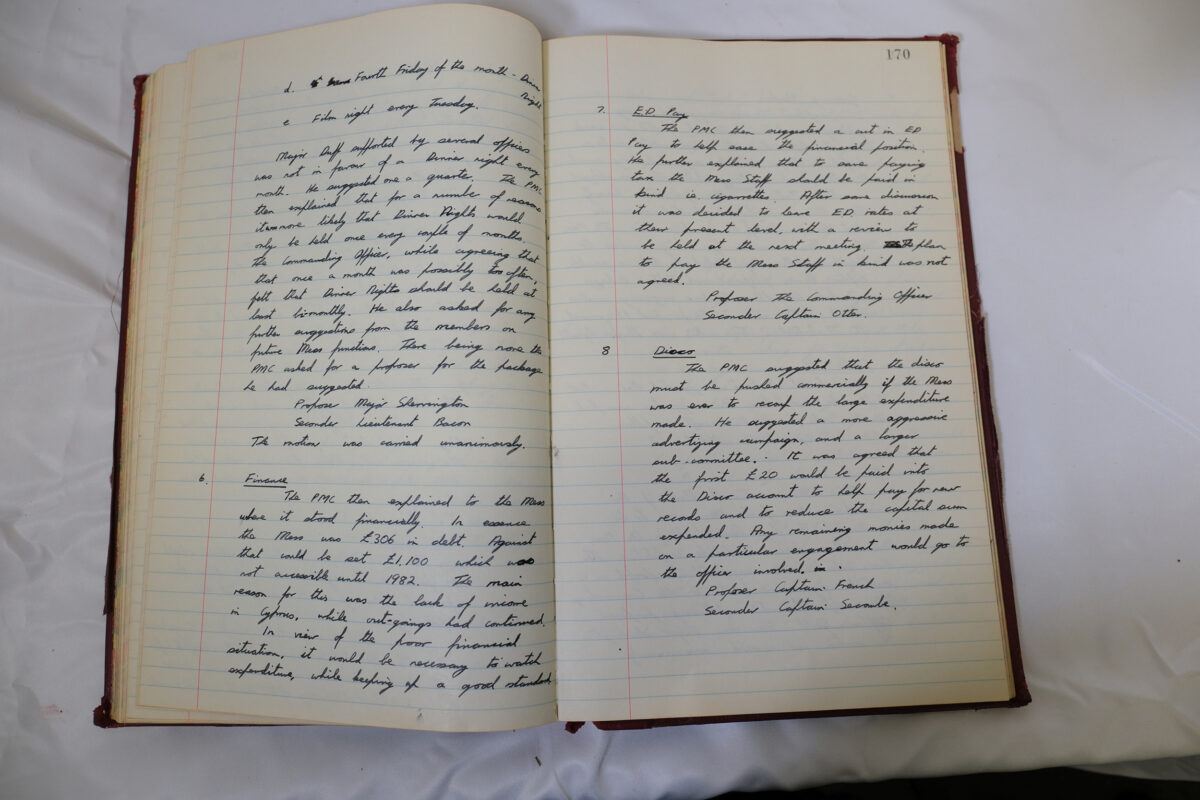 d. Fourth Friday of the month - Dinner
Night
e Film night every Tuesday.
Major Duff supported by several officers
was not in favour of a Dinner night every
month. He suggested one a quarter. The PMC
then explained that for a number of reasons
it was more likely that Dinner Nights would
only be held once every couple of months.
The Commanding Officer, while agreeing that
that once a month was possibly too often,
felt that Dinner Nights should be held at
least bi-monthly. He also asked for any
further suggestions from the members on
future Mess functions. There being none the
PMC asked for a proposer for the package
he had suggested.
Proposer Major
Seconder Lieutenant Bacon
The motion was carried unanimously.
6. Finance
The PMC then explained to the Mess
where it stood financially. In essence
the Mess was £306 in debt. Against
that could be set £1,100 which was
not accessible until 1982. The main
reason for this was the lack of income
in Cyprus, while out-goings had continued.
In view of the poor financial
situation, it would be necessary to watch
expenditure, while keeping up a good standard.
170
7. E.D. Pay
The PMC then suggested a cut in ED
Pay to help ease the financial position.
He further explained that to save paying
tax the Mess Staff should be paid in
kind ie. cigarettes. After some discussion
it was decided to leave ED. rates at
their present level, with a review to
be held at the next meeting. The plan
to pay the Mess Staff in kind was not
agreed.
Proposer The Commanding Officer
Seconder Captain Otter.
8 Disco
The PMC suggested that the disco
must be pushed commercially if the Mess
was ever to recoup the large expenditure
made. He suggested a more aggressive
advertizing campaign, and a larger
sub-committee. It was agreed that
the first £20 would be paid into
the Disco account to help pay for new
records and to reduce the capital sum
expended. Any remaining monies made
on a particular engagement would go to
the officer involved.
Proposer Captain French
Seconder Captain Secombe.